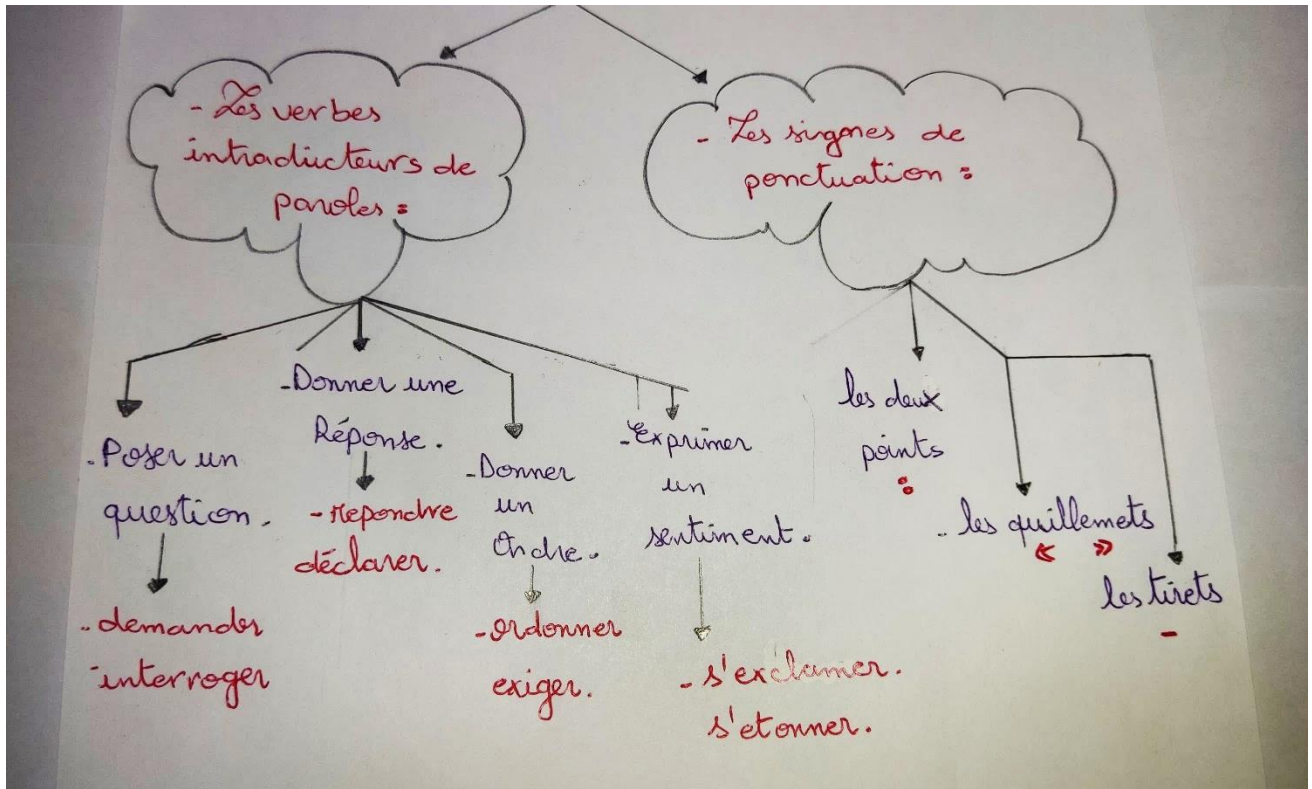 - Les verbes
intraducteurs de
paroles :
- Les signes de
ponctuation :
- Poser un
question.
- demander
- interroger
- Donner une
Réponse.
- repondre
déclarer.
- Donner
un
Ordre.
- ordonner
exiger.
- Exprimer
un
sentiment.
- s'exclamer.
s'etonner.
les deux
points
:
- les guillemets
« »
les tirets
-